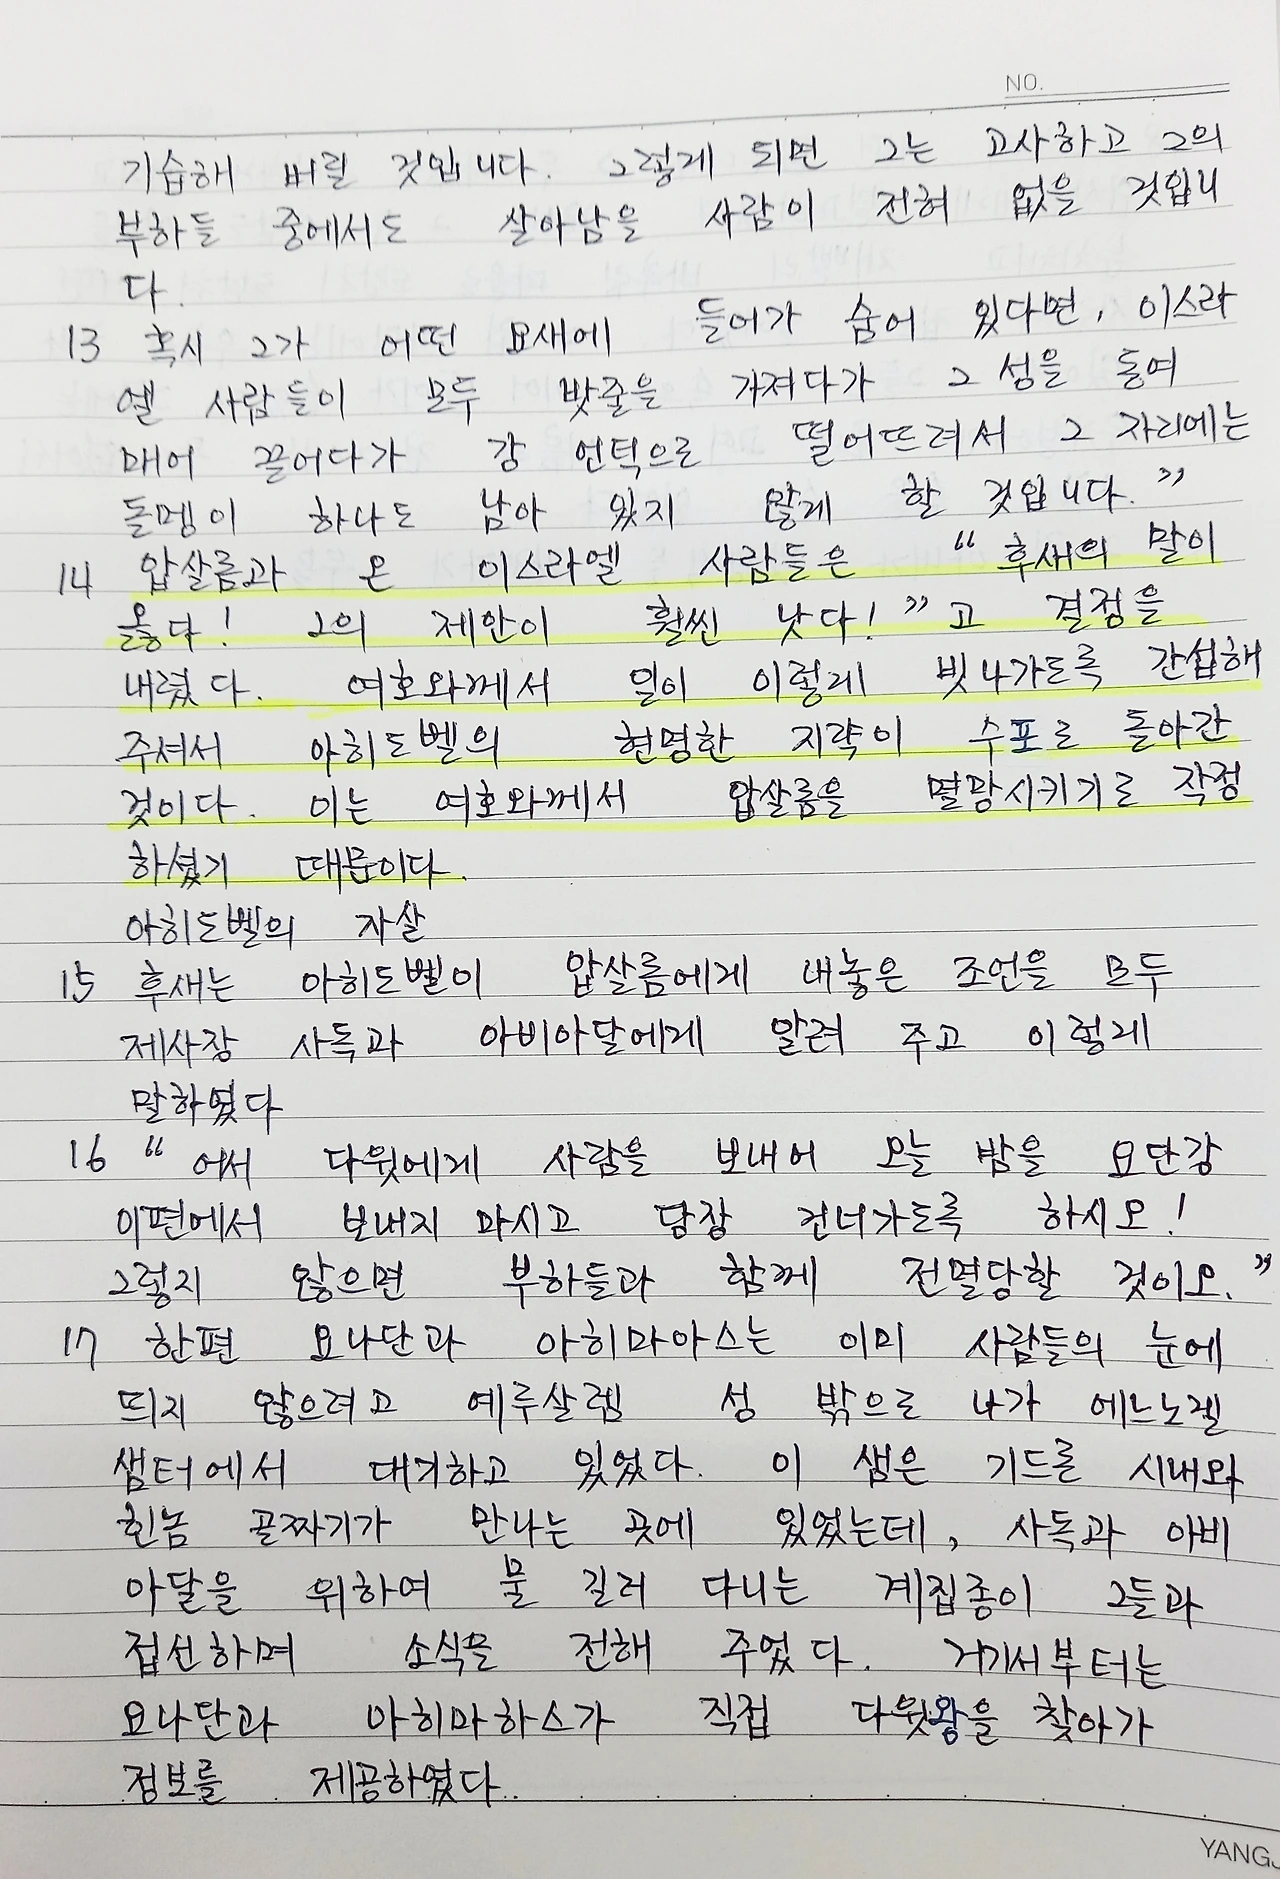 NO.
기습해 버릴 것입니다. 그렇게 되면 그는 고사하고 그의
부하들 중에서도 살아남을 사람이 전혀 없을 것입니
다.
13 혹시 그가 어떤 요새에 들어가 숨어 있다면, 이스라
엘 사람들이 모두 밧줄을 가져다가 그 성을 동여
매어 끌어다가 강 언덕으로 떨어뜨려서 그 자리에는
돌멩이 하나도 남아 있지 않게 할 것입니다."
14 압살롬과 온 이스라엘 사람들은 "후새의 말이
옳다! 그의 제안이 훨씬 낫다!"고 결정을
내렸다. 여호와께서 일이 이렇게 빗나가도록 간섭해
주셔서 아히도벨의 현명한 지략이 수포로 돌아간
것이다. 이는 여호와께서 압살롬을 멸망시키기로 작정
하셨기 때문이다.
아히도벨의 자살
15 후새는 아히도벨이 압살롬에게 내놓은 조언을 모두
제사장 사독과 아비아달에게 알려 주고 이렇게
말하였다
16 "어서 다윗에게 사람을 보내어 오늘 밤을 요단강
이편에서 보내지 마시고 당장 건너가도록 하시오!
그렇지 않으면 부하들과 함께 전멸당할 것이오."
17 한편 요나단과 아히마아스는 이미 사람들의 눈에
띄지 않으려고 예루살렘 성 밖으로 나가 에느노겔
샘터에서 대기하고 있었다. 이 샘은 기드론 시내와
힌놈 골짜기가 만나는 곳에 있었는데, 사독과 아비
아달을 위하여 물 길러 다니는 계집종이 그들과
접선하며 소식을 전해 주었다. 거기서부터는
요나단과 아히마하스가 직접 다윗왕을 찾아가
정보를 제공하였다.